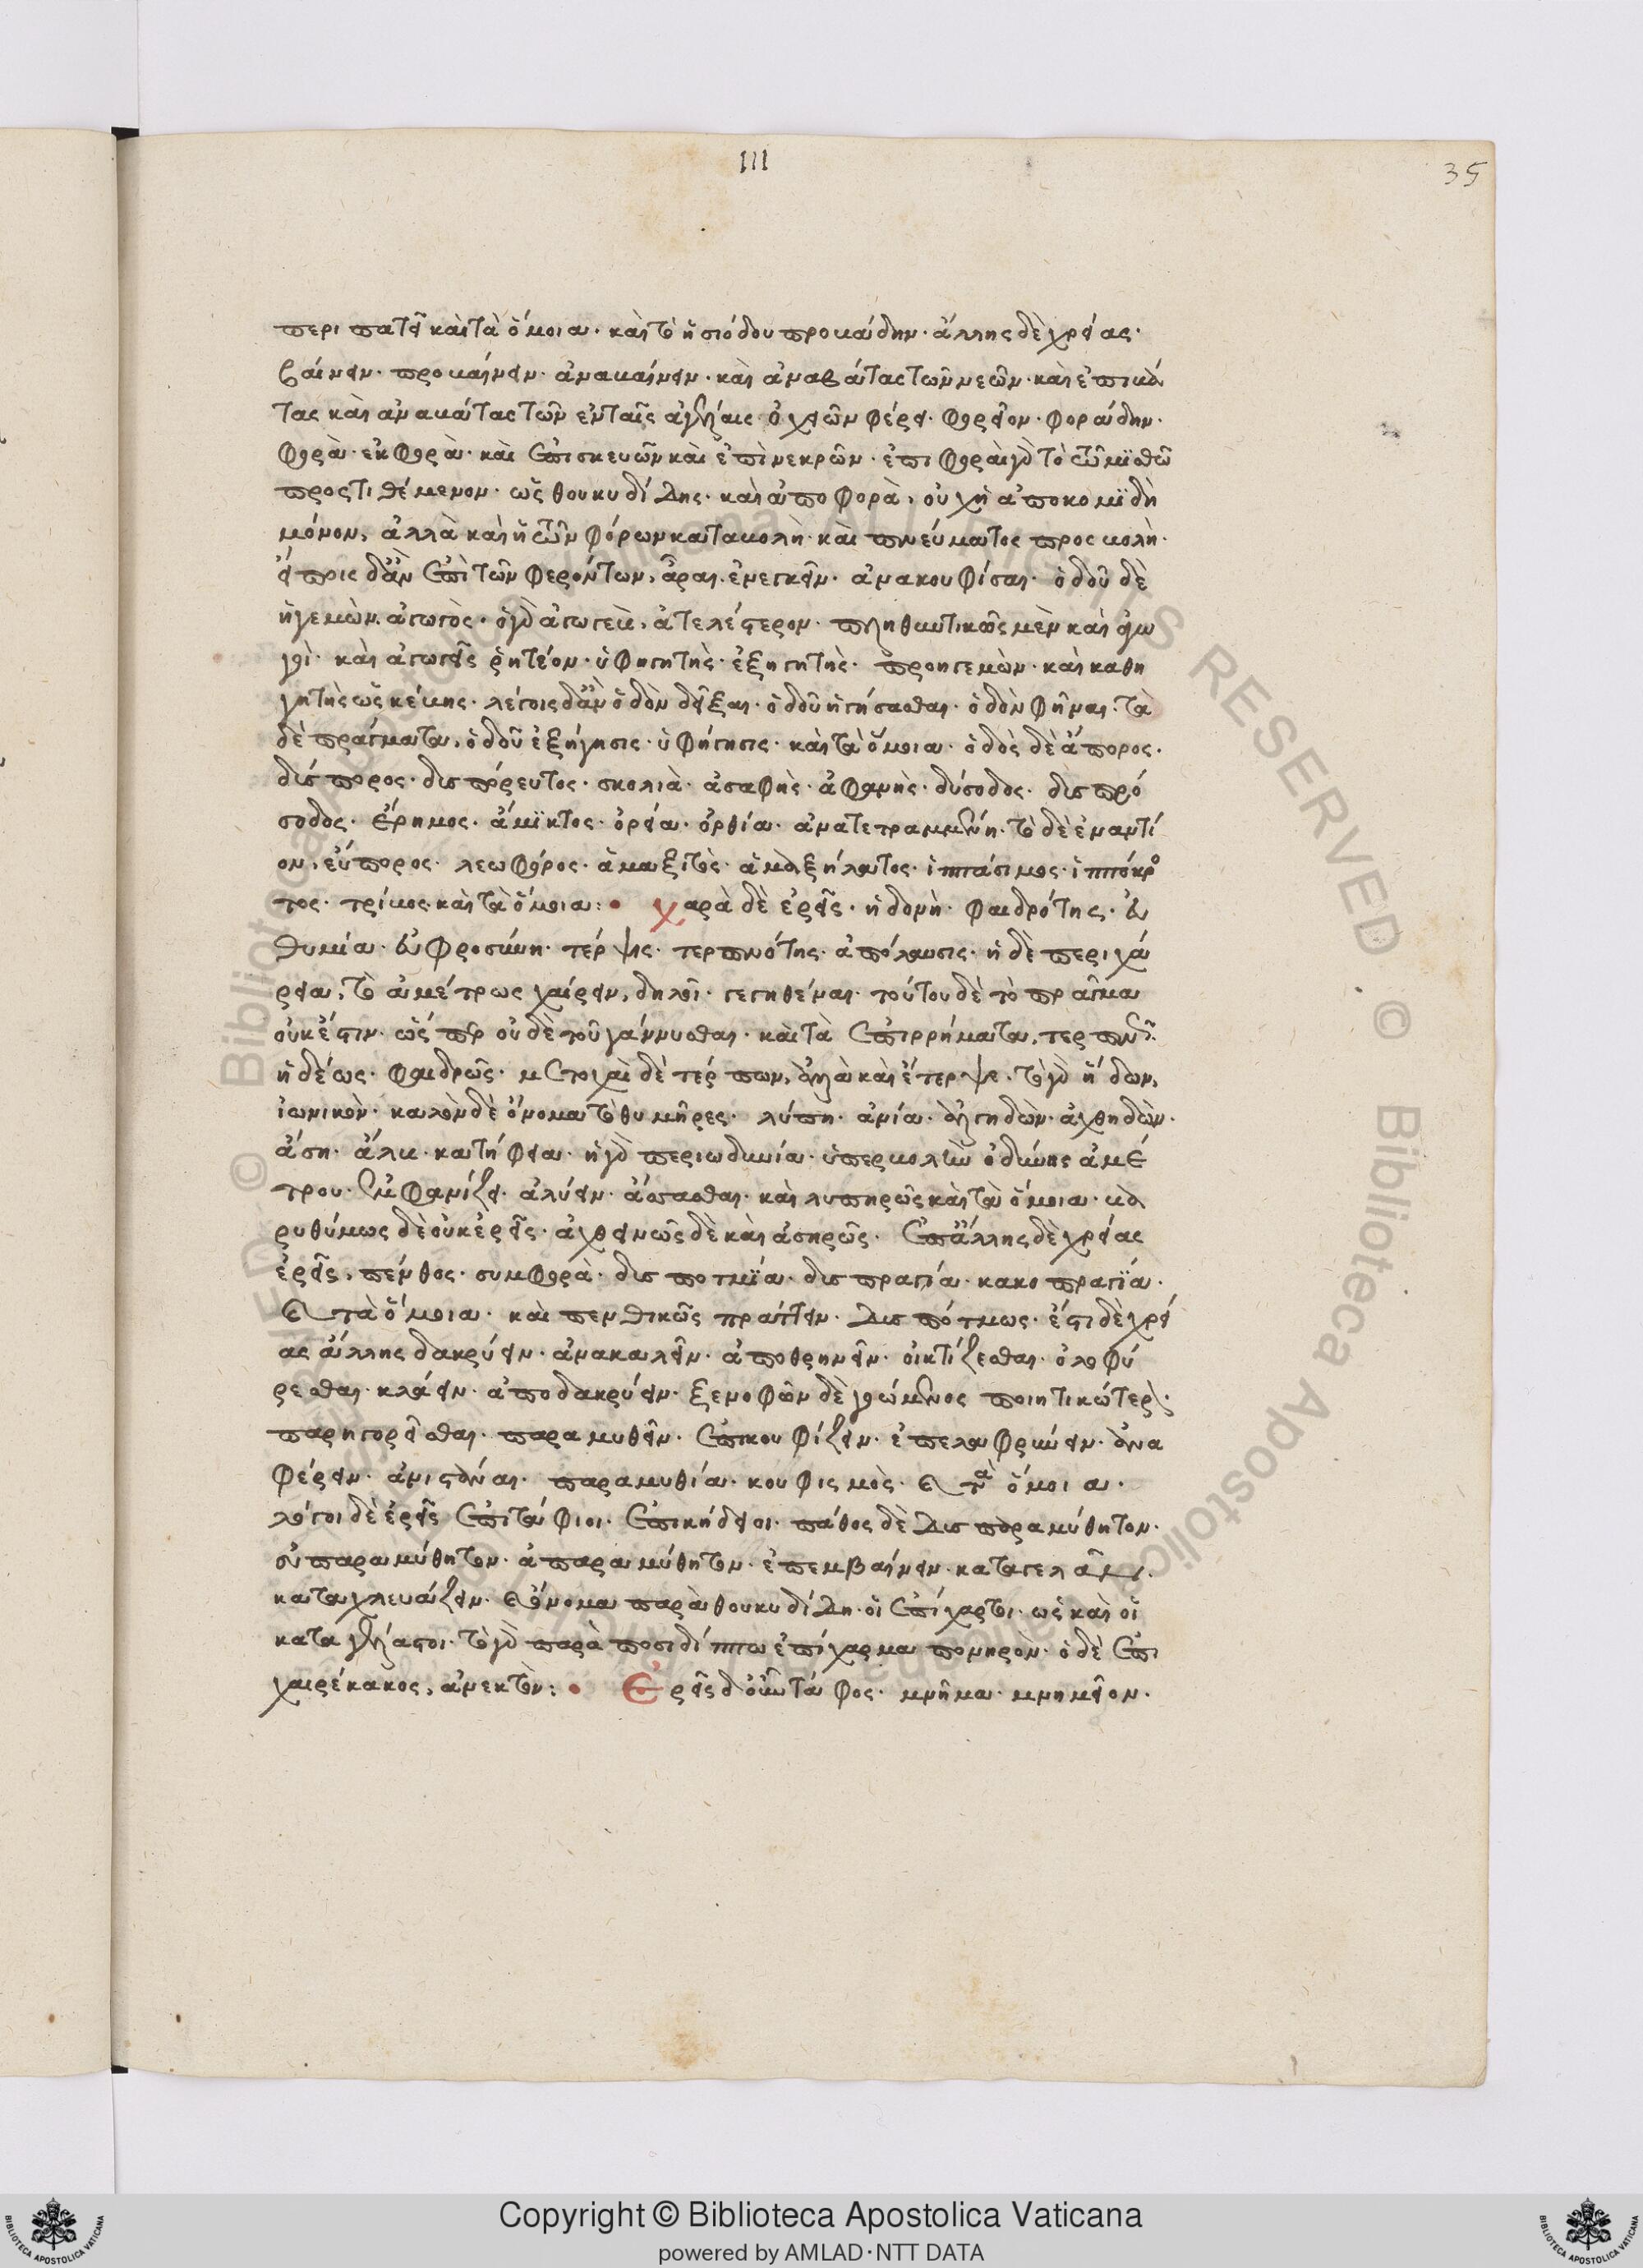 III
35
περιπατεῖ καὶ τὰ ὅμοια· καὶ τὸ ἡσιόδου προβάδην· ἄλλης δὲ χρείας·
βαίνειν· προβαίνειν· ἀναβαίνειν· καὶ ἀναβάτας τῶν νεῶν· καὶ ἐπιβά
τας καὶ ἀναβάτας τῶν ἐν ταῖς ἀγέλαις ὀχειῶν φέρει· φορεῖον· φοράδην·
φορὰ· ἐκφορὰ· καὶ ἐπὶ σκευῶν καὶ ἐπὶ νεκρῶν· ἐπιφορὰ γὰρ τὸ τῶ μϊσθῶ
προστιθέμενον· ὡς θουκυδίδης· καὶ ἀποφορὰ, οὐχὴ ἀποκομϊδὴ
μόνον, ἀλλὰ καὶ ἡ τῶν φόρων καταβολὴ· καὶ πνεύματος προσβολὴ·
εἴποις δ' ἂν ἐπὶ τῶν φερόντων, ἆραι· ἐνεγκεῖν· ἀνακουφίσαι· ὁδοῦ δὲ
ἡγεμὼν· ἀγωγὸς· ὁ γὰρ ἀγωγεὺς, ἀτελέστερον· πληθυντικῶς μὲν καὶ ἀγω
γοὶ· καὶ ἀγωγεῖς ῥητέον· ὑφηγητὴς· ἐξηγητὴς· προηγεμὼν· καὶ καθη
γητὴς ὡς κέβης· λέγοις δ' ἂν ὁδὸν δεῖξαι· ὁδοῦ ἡγήσασθαι· ὁδὸν φῆναι· τὰ
δὲ πράγματα, ὁδοῦ ἐξήγησις· ὑφήγησις· καὶ τὰ ὅμοια· ὁδὸς δὲ ἄπορος·
δύσπορος· δυσπόρευτος· σκολιὰ· ἀσαφὴς· ἀφανὴς· δύσοδος· δυσπρό
σοδος· ἔρημος· ἄμϊκτος· ὀρεία· ὀρθία· ἀνατετραμμένη· τὸ δὲ ἐναντί
ον, εὔπορος· λεωφόρος· ἁμαξιτὸς· ἁμαξήλατος· ἱππάσιμος· ἱππόκρο
τος· τρίβος καὶ τὰ ὅμοια:· Χαρὰ δὲ ἐρεῖς· ἡδονὴ· φαιδρότης· εὐ
θυμία· εὐφροσύνη· τέρψις· τερπνότης· ἀπόλαυσις· ἡ δὲ περιχά
ρεια, τὸ ἀμέτρως χαίρειν, δηλοῖ· γεγηθέναι· τούτου δὲ τὸ πρᾶγμα
οὐκ ἔστιν· ὥσπερ οὐδὲ τοῦ γάννυσθαι· καὶ τὰ ἐπιρρήματα, τερπνῶς·
ἡδέως· φαιδρῶς· μετοχαὶ δὲ τέρπων, ἀλλὰ καὶ ἔτερψε· τὸ γὰρ ἥδων,
ἰωνικὸν· καλὸν δὲ ὄνομα τὸ θυμῆρες· λύπη· ἀνία· ἀλγηδὼν· ἀχθηδὼν·
ἄση· ἄλυς· κατήφεια· ἡ γὰρ περιωδυνία· ὑπερβολὴν ὀδύνης ἀμέ
τρου· ἐμφανίζει· ἀλύειν· ἀσᾶσθαι· καὶ λυπηρῶς καὶ τὰ ὅμοια· βα
ρυθύμως δὲ οὐκ ἐρεῖς· ἀχθεινῶς δὲ καὶ ἀσηρῶς· ἐπ' ἄλλης δὲ χρείας
ἐρεῖς, πένθος· συμφορὰ· δυσποτμϊα· δυσπραγία· κακοπραγϊα·
καὶ τὰ ὅμοια· καὶ πενθικῶς πράττειν· δυσπότμως· ἔστι δὲ χρεί
ας ἄλλης δακρύειν· ἀνακαλεῖν· ἀποθρηνεῖν· οἰκτίζεσθαι· ὀλοφύ
ρεσθαι· κλάειν· ἀποδακρύειν· ξενοφῶν δὲ γοώμενος ποιητικώτερον·
παρηγορεῖσθαι· παραμυθεῖν· ἐπικουφίζειν· ἐπελαφρύνειν· ἀνα
φέρειν· ἀνιστάναι· παραμυθία· κουφισμὸς· καὶ τὰ ὅμοια·
λόγοι δὲ ἐρεῖς ἐπιτάφιοι· ἐπικήδειοι· πάθος δὲ δυσπαραμύθητον·
εὐπαραμύθητον· ἀπαραμύθητον· ἐπεμβαίνειν· καταγελᾶν·
καταχλευάζειν· καὶ ὄνομα παρὰ θουκυδίδη· οἱ ἐπίχαρτοι· ὡς καὶ οἱ
καταγέλαστοι· τὸ γὰρ παρὰ ποσιδίππω ἐπίχαρμα πονηρὸν· ὁ δὲ ἐπι
χαιρέκακος, ἀνεκτὸν:· Ἐρεῖς δ' οὖν τάφος· μνῆμα· μνημεῖον·
Copyright © Biblioteca Apostolica Vaticana
powered by AMLAD·NTT DATA